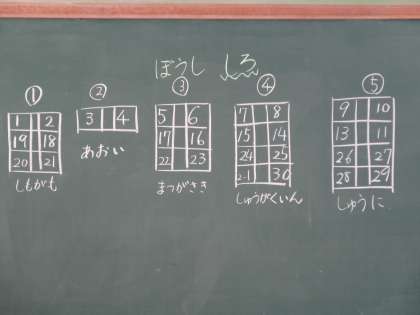 ぼうし しろ
①
1 2
19 18
20 21
しもがも
②
3 4
あおい
③
5 6
17 16
22 23
まつがさき
④
7 8
15 14
24 25
2-1 30
しゅうがくいん
⑤
9 10
13 11
26 27
28 29
しゅうに